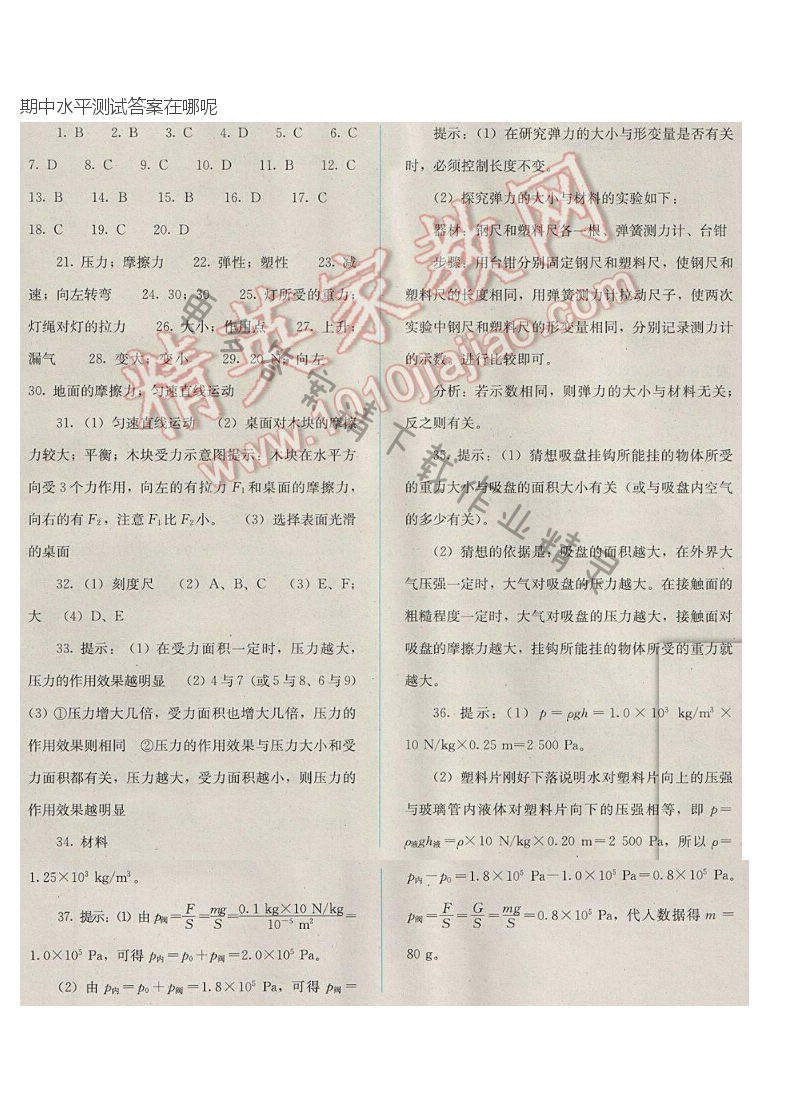 期中水平测试答案在哪呢
1. B 2. B 3. C 4. D 5. C 6. C
7. D 8. C 9. C 10. D 11. B 12. C
13. B 14. B 15. B 16. D 17. C
18. C 19. C 20. D
21. 压力；摩擦力 22. 弹性；塑性 23. 减
速；向左转弯 24. 30；30 25. 灯所受的重力；
灯绳对灯的拉力 26. 大小；作用点 27. 上升；
漏气 28. 变大；变小 29. 20 N；向左
30. 地面的摩擦力；匀速直线运动
31. （1）匀速直线运动 （2）桌面对木块的摩擦
力较大；平衡；木块受力示意图提示：木块在水平方
向受 3 个力作用，向左的有拉力 F₁ 和桌面的摩擦力，
向右的有 F₂，注意 F₁ 比 F₂ 小。 （3）选择表面光滑
的桌面
32. （1）刻度尺 （2）A、B、C （3）E、F；
大 （4）D、E
33. 提示：（1）在受力面积一定时，压力越大，
压力的作用效果越明显 （2）4 与 7（或 5 与 8、6 与 9）
（3）①压力增大几倍，受力面积也增大几倍，压力的
作用效果则相同 ②压力的作用效果与压力大小和受
力面积都有关，压力越大，受力面积越小，则压力的
作用效果越明显
34. 材料
提示：（1）在研究弹力的大小与形变量是否有关
时，必须控制长度不变。
（2）探究弹力的大小与材料的实验如下：
器材：钢尺和塑料尺各一根、弹簧测力计、台钳
步骤：用台钳分别固定钢尺和塑料尺，使钢尺和
塑料尺的长度相同，用弹簧测力计拉动尺子，使两次
实验中钢尺和塑料尺的形变量相同，分别记录测力计
的示数。进行比较即可。
分析：若示数相同，则弹力的大小与材料无关；
反之则有关。
35. 提示：（1）猜想吸盘挂钩所能挂的物体所受
的重力大小与吸盘的面积大小有关（或与吸盘内空气
的多少有关）。
（2）猜想的依据是，吸盘的面积越大，在外界大
气压强一定时，大气对吸盘的压力越大。在接触面的
粗糙程度一定时，大气对吸盘的压力越大，接触面对
吸盘的摩擦力越大，挂钩所能挂的物体所受的重力就
越大。
36. 提示：（1）p＝ρgh＝1.0×10³ kg/m³×
10 N/kg×0.25 m＝2 500 Pa。
（2）塑料片刚好下落说明水对塑料片向上的压强
与玻璃管内液体对塑料片向下的压强相等，即 p＝
ρ液gh液＝ρ×10 N/kg×0.20 m＝2 500 Pa，所以 ρ＝
1.25×10³ kg/m³。
37. 提示：（1）由 p阀＝F/S＝mg/S＝0.1 kg×10 N/kg/10⁻⁵ m²＝
1.0×10⁵ Pa，可得 p内＝p₀＋p阀＝2.0×10⁵ Pa。
（2）由 p内＝p₀＋p阀＝1.8×10⁵ Pa，可得 p阀＝
p内－p₀＝1.8×10⁵ Pa－1.0×10⁵ Pa＝0.8×10⁵ Pa。
p阀＝F/S＝G/S＝mg/S＝0.8×10⁵ Pa，代入数据得 m＝
80 g。
精英家教网
www.1010jiajiao.com
更多答案请下载作业精灵